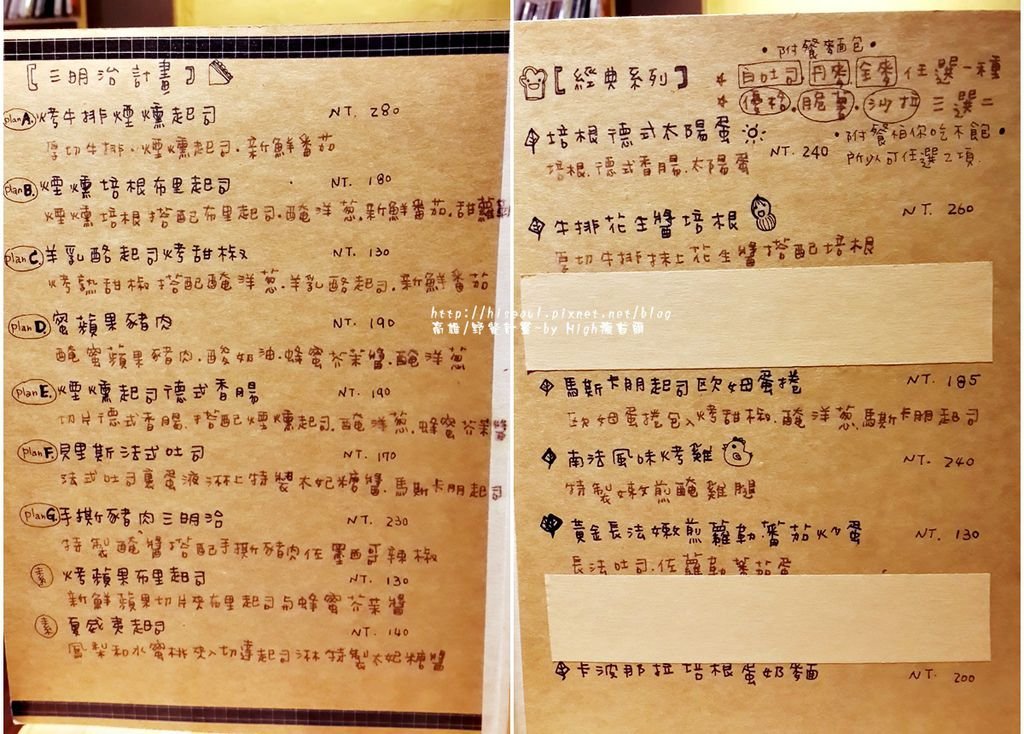 [三明治計畫]
plan A. 烤牛排煙燻起司 NT. 280
厚切牛排、煙燻起司.新鮮番茄
plan B. 煙燻培根布里起司 NT. 180
煙燻培根搭配布里起司.醃洋蔥.新鮮番茄.甜蘿
plan C. 羊乳酪起司烤甜椒 NT. 130
烤熟甜椒搭配醃洋蔥.羊乳酪起司.新鮮番茄
plan D. 蜜蘋果豬肉 NT. 190
醃蜜蘋果豬肉.酸奶油.蜂蜜芥茉醬.醃洋蔥
plan E. 煙燻起司德式香腸 NT. 190
切片德式香腸.搭配煙燻起司.醃洋蔥.蜂蜜芥茉
plan F. 貝里斯法式吐司 NT. 170
法式吐司裹蛋液淋上特製太妃糖醬.馬斯卡朋起司
plan G. 手撕豬肉三明治 NT. 230
特製醃醬搭配手撕豬肉佐墨西哥辣椒
素 烤蘋果布里起司 NT. 130
新鮮蘋果切片夾布里起司与蜂蜜芥茉醬
素 夏威夷起司 NT. 140
鳳梨和水蜜桃夾入切達起司淋特製太妃糖醬
[經典系列]
•附餐麵包•
★白吐司.丹麥.全麥任選一種
★優格.脆薯.沙拉三選二
•附餐怕你吃不飽•
所以可任選2項
培根德式太陽蛋 NT. 240
培根.德式香腸.太陽蛋
牛排花生醬培根 NT. 260
厚切牛排抹上花生醬搭配培根
馬斯卡朋起司歐姆蛋捲 NT. 185
歐姆蛋捲包入烤甜椒.醃洋蔥.馬斯卡朋起司
南法風味烤雞 NT. 240
特製嫩煎醃雞腿
黃金長法嫩煎蘿勒.蕃茄火蛋 NT. 130
長法吐司.佐蘿勒蕃茄蛋
卡波那拉培根蛋奶麵 NT. 200
http://hiseoul.pixnet.net/blog
高雄/野餐計畫~by High